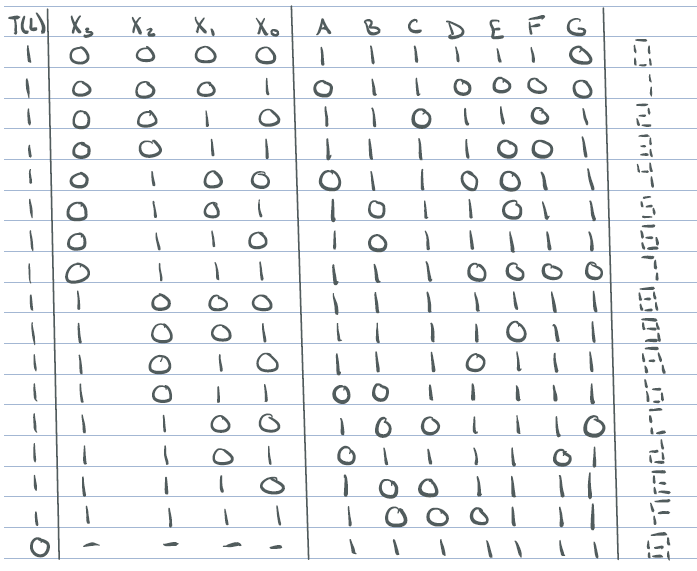 T(L) X₃ X₂ X₁ X₀ A B C D E F G
1 0 0 0 0 1 1 1 1 1 1 0 0
1 0 0 0 1 0 1 1 0 0 0 0 1
1 0 0 1 0 1 1 0 1 1 0 1 2
1 0 0 1 1 1 1 1 1 0 0 1 3
1 0 1 0 0 0 1 1 0 0 1 1 4
1 0 1 0 1 1 0 1 1 0 1 1 5
1 0 1 1 0 1 0 1 1 1 1 1 6
1 0 1 1 1 1 1 1 0 0 0 0 7
1 1 0 0 0 1 1 1 1 1 1 1 8
1 1 0 0 1 1 1 1 1 0 1 1 9
1 1 0 1 0 1 1 1 0 1 1 1 A
1 1 0 1 1 0 0 1 1 1 1 1 b
1 1 1 0 0 1 0 0 1 1 1 0 C
1 1 1 0 1 0 1 1 1 1 0 1 d
1 1 1 1 0 1 0 0 1 1 1 1 E
1 1 1 1 1 1 0 0 0 1 1 1 F
0 - - - - 1 1 1 1 1 1 1 8